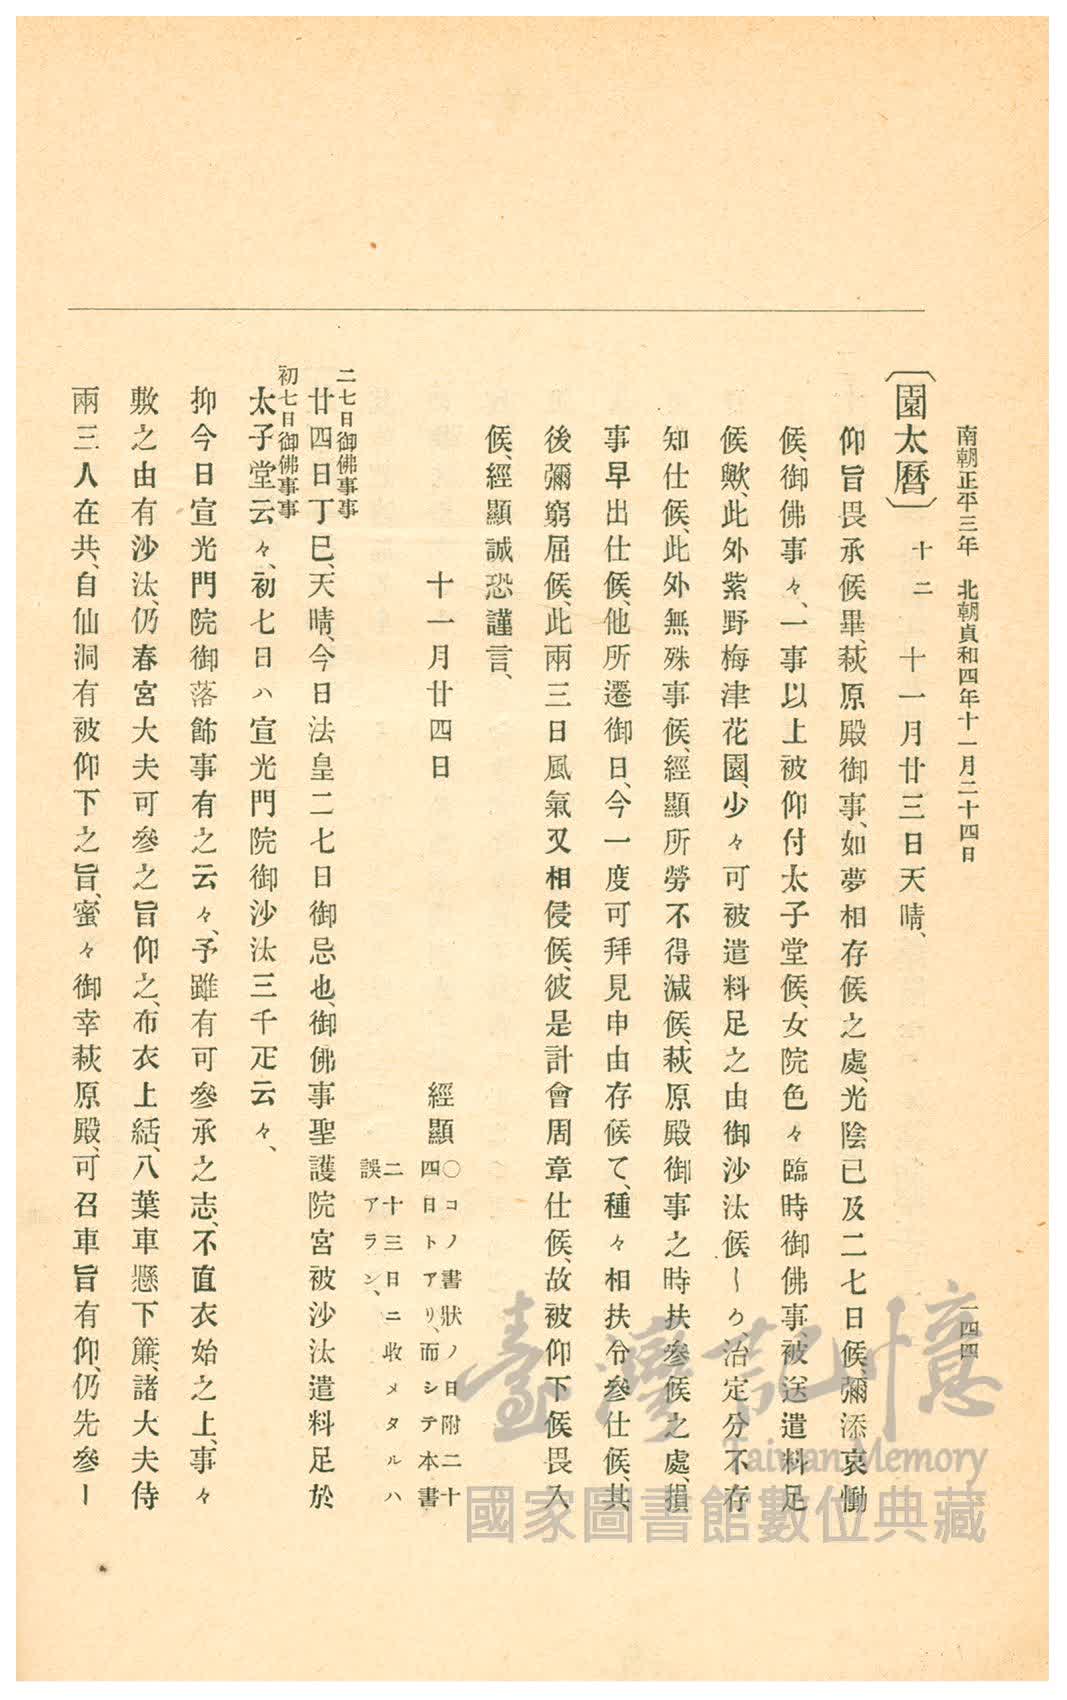 南朝正平三年 北朝貞和四年十一月二十四日
一四四
〔園太曆〕 十二 十一月廿三日天晴、
仰旨畏承候畢、萩原殿御事、如夢相存候之處、光陰已及二七日候、彌添哀慟
候、御佛事々、一事以上被仰付太子堂候、女院色々臨時御佛事被送遣料足
候歟、此外紫野梅津花園、少々可被遣料足之由御沙汰候〵り、治定分不存
知仕候、此外無殊事候、經顯所勞不得減候、萩原殿御事之時扶參候之處、損
事早出仕候、他所遷御日、今一度可拜見申由存候て、種々相扶令參仕候、其
後彌窮屈候、此兩三日風氣又相侵候、彼是計會周章仕候、故被仰下候畏入
候、經顯誠恐謹言、
十一月廿四日
經顯
〇コノ書狀ノ日附二十
四日トアリ、而シテ本書
二十三日ニ收メタルハ
誤アラン、
二七日御佛事事
廿四日丁巳、天晴、今日法皇二七日御忌也、御佛事聖護院宮被沙汰遣料足於
初七日御佛事事
太子堂云々、初七日ハ宣光門院御沙汰三千疋云々、
抑今日宣光門院御落飾事有之云々、予雖有可參承之志、不直衣始之上、事々
敷之由有沙汰、仍春宮大夫可參之旨仰之、布衣上結、八葉車懸下簾、諸大夫侍
兩三人在共、自仙洞有被仰下之旨、蜜々御幸萩原殿、可召車旨有仰、仍先參〡
臺灣記憶
Taiwan Memory
國家圖書館數位典藏